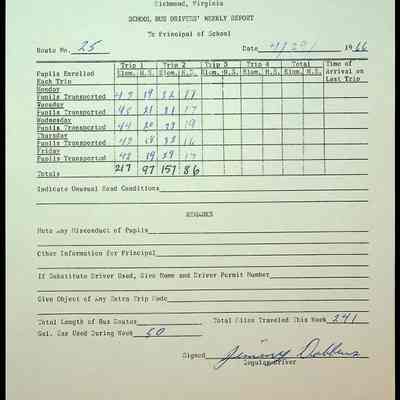 Richmond, Virginia
SCHOOL BUS DRIVERS' WEEKLY REPORT
To Principal of School
Route No. 25 Date 4/29/ 1966
Trip 1 Trip 2 Trip 3 Trip 4 Total Time of
Pupils Enrolled Elem. H.S. Elem. H.S. Elem. H.S. Elem. H.S. Elem. H.S. Arrival on
Each Trip Last Trip
Monday
Pupils Transported 19
Tuesday
Pupils Transported 45 21 21 17
Wednesday
Pupils Transported 44 20 19
Thursday
Pupils Transported 18 32 16
Friday
Pupils Transported 42 19 29 17
Totals 217 97 157 86
Indicate Unusual Road Conditions
REMARKS
Note Any Misconduct of Pupils
Other Information for Principal
If Substitute Driver Used, Give Name and Driver Permit Number
Give Object of Any Extra Trip Made
Total Length of Bus Routes Total Miles Traveled This Week 241
Gal. Gas Used During Week 50
Signed Jimmy Dobbins
Regular Driver